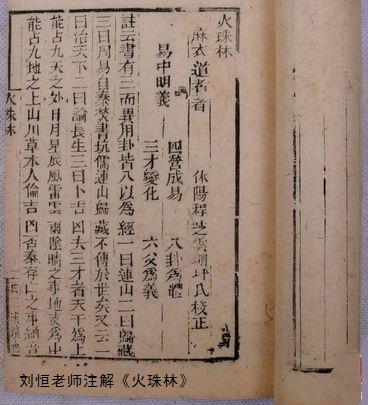 火珠林
麻衣道者著 休陽程芝雲 坪氏校正
易中明義 四營成易 八卦爲體
三才變化 六爻爲義
註云書有三而異用卦皆八以爲經一曰連山二曰歸藏
三曰周易自秦焚書坑儒連山歸藏不傳於世矣又云一
曰治天下二曰論長生三曰卜吉凶夫三才者天爲上
能占九天之外日月星辰風雷雲雨陰晴之事地支爲中
能占九地之上山川草木人倫吉凶否泰存亡之事
火珠林
刘恒老师注解《火珠林》